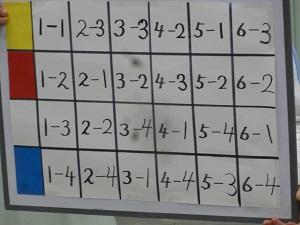 1-1 2-3 3-3 4-2 5-1 6-3
1-2 2-1 3-2 4-3 5-2 6-2
1-3 2-2 3-4 4-1 5-4 6-1
1-4 2-4 3-1 4-4 5-3 6-4